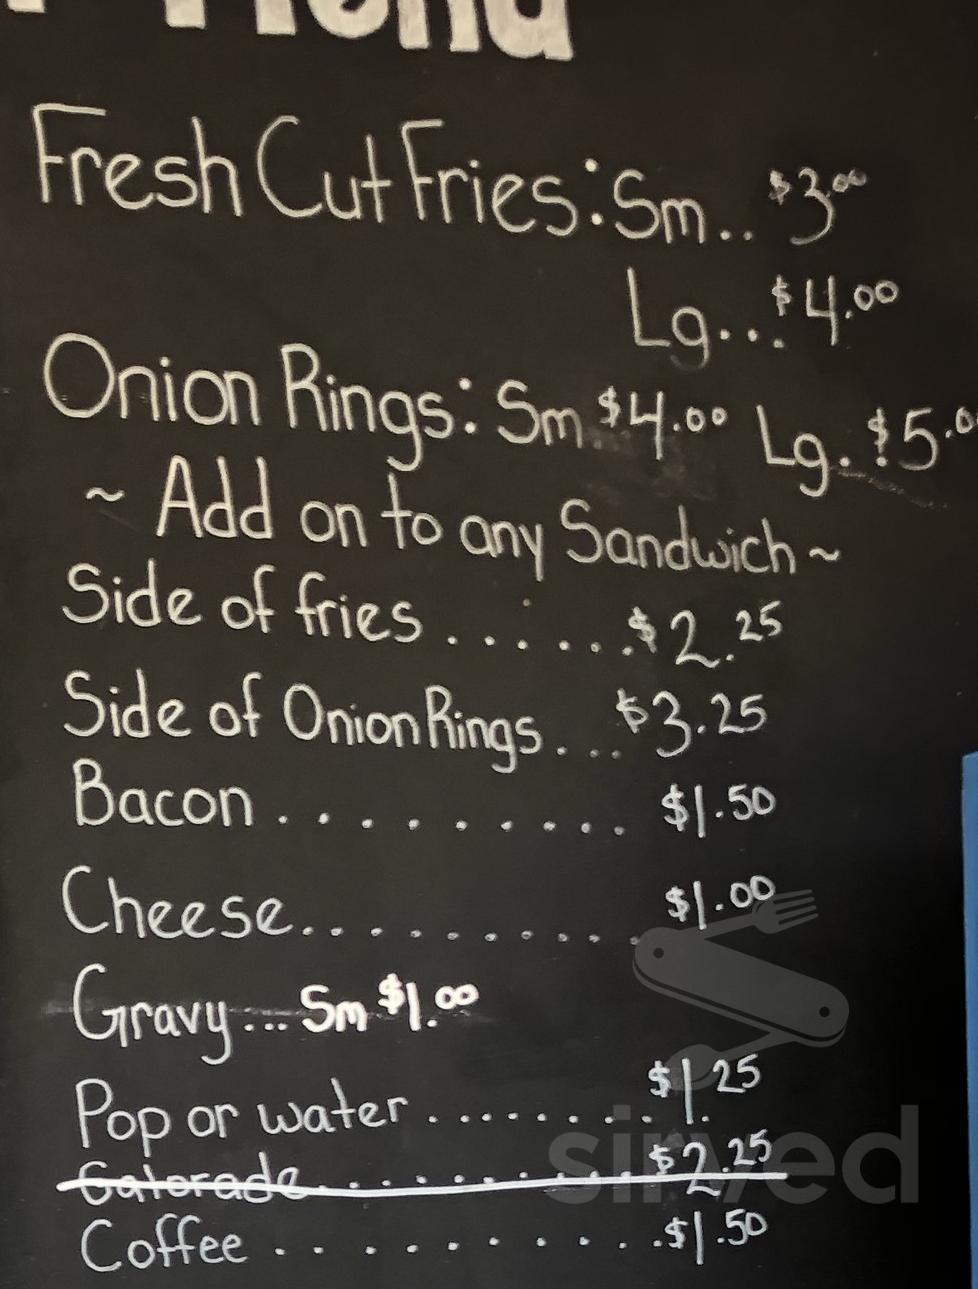 Menu
Fresh Cut Fries: Sm.. $3.00
Lg... $4.00
Onion Rings: Sm. $4.00 Lg. $5.0
~ Add on to any Sandwich ~
Side of fries ....... $2.25
Side of Onion Rings .... $3.25
Bacon .......... $1.50
Cheese.......... $1.00
Gravy... Sm $1.00
Pop or water ........ $1.25
Gatorade......... $2.25
Coffee .......... $1.50
sirved